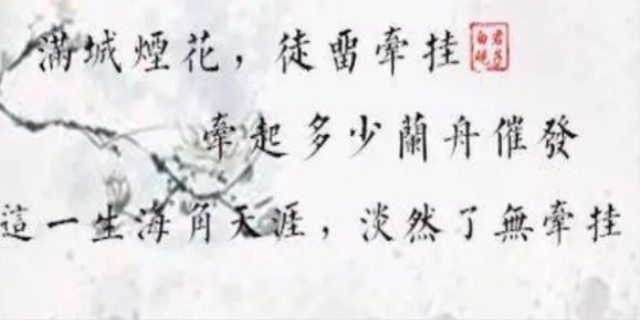 滿城煙花，徒畱牽挂
牽起多少蘭舟催發
這一生海角天涯，淡然了無牽挂